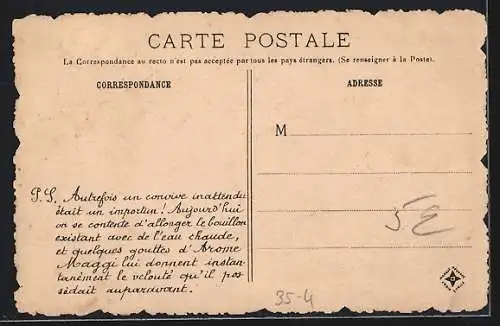 CARTE POSTALE
La Correspondance au recto n'est pas acceptée par tous les pays étrangers. (Se renseigner à la Poste).
CORRESPONDANCE
ADRESSE
M
P.S. Autrefois un convive inattendu
était un importun! Aujourd'hui
on se contente d'allonger le bouillon
existant avec de l'eau chaude,
et quelques gouttes d'Arome
Maggi lui donnent instan-
tanément le velouté qu'il pos
sédait auparavant.
5E
35-4